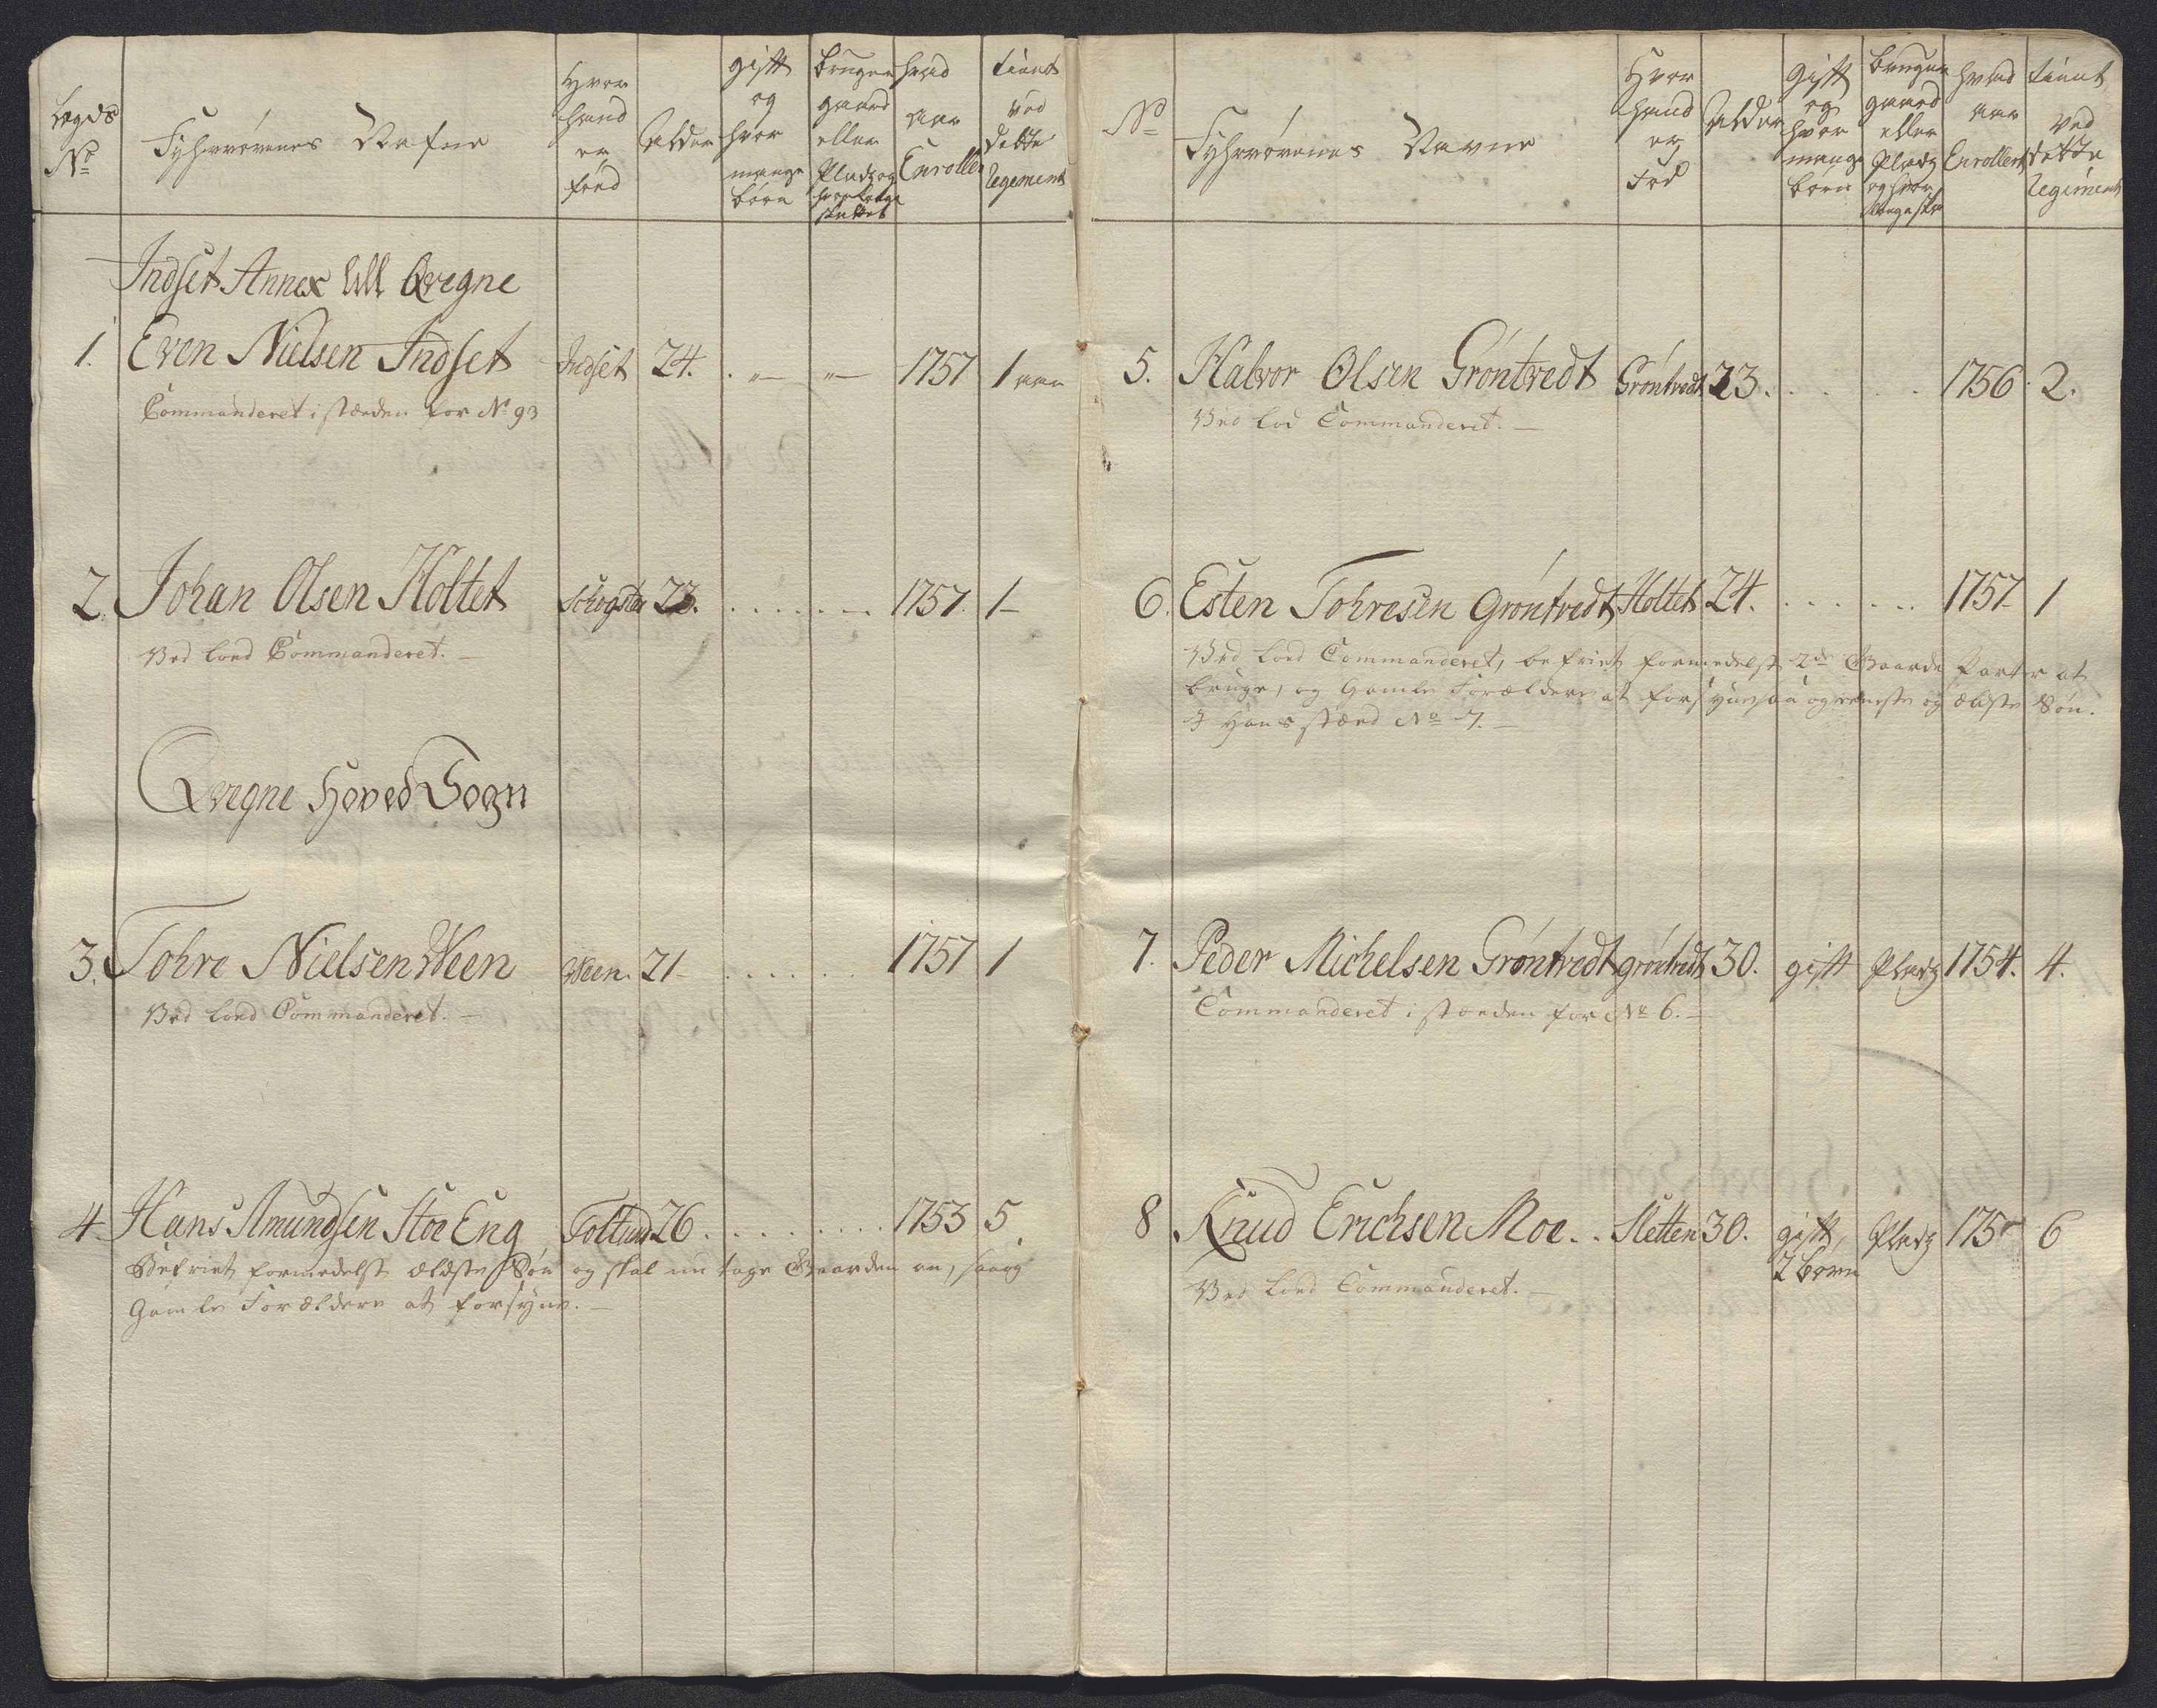 Legds No
Fyhrrørernes Nafne
Hvor hand er fød
Alder
gift og hvor mange børn
bruger gaard eller Pladz og
hvad aar Enrollert
tient ved dette Regement
Indset Annex till Qvegne
1. Even Nielsen Indset Indset 24. . „— „— 1757 1 aar
Commanderet i stæden for No 93
2. Johan Olsen Holtet 23. . . . . . . . 1757. 1—
Ved Lod Commanderet. —
Qvegne Hoved Sogn
3. Tohre Nielsen Ween Ween. 21 . . . . . 1757 1
Ved Lod Commanderet. —
4. Hans Amundsen Stoe Eng 26. . . . . . . . 1753 5
Befriet formedelst ældste Søn og skal nu tage Gaarden an, saa og
Gamle Forældere at forsyne. —
No
Fyhrrørernes Navne
Hvor hand er Fød
Alder
Gift og hvor mange børn
bruger gaard eller Pladz og hvor
hvad aar Enrollert
tient ved dette Regiment
5. Halvor Olsen Grøntvedt Grøntvedt 23. . . . . . 1756. 2.
Ved Lod Commanderet. —
6. Esten Tohresen Grøntvedt Holtet 24. . . . . . . 1757 1
Ved Lod Commanderet, befriet formedelst 2de Gaarde Parter at
bruge, og Gamle Forældere at forsyne saa og eeneste og ældste Søn.
I Hans stæd No 7. —
7. Peder Michelsen Grøntvedt grøntvedt 30. gift Pladz 1754. 4.
Commanderet i stæden for No 6. —
8 Knud Erichsen Moe . . Sletten 30. gift, Pladz 6
2 børn
Ved Lod Commanderet. —